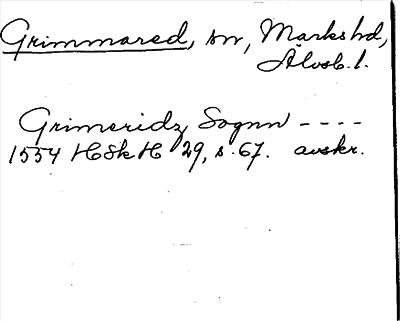 Grimmared, sn, Marks hd,
Älvsb. l.
Grimeridz Sognn ----
1554 HSkH 29, s. 67. avskr.